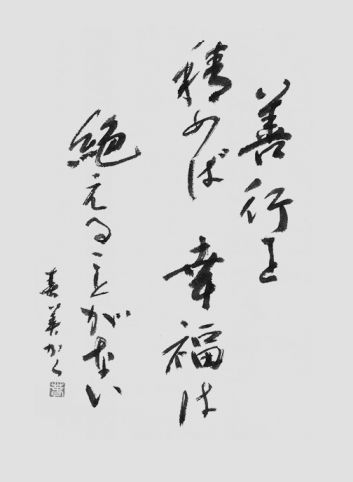 善行を
積めば 幸福は
絶えることがない
春美かく